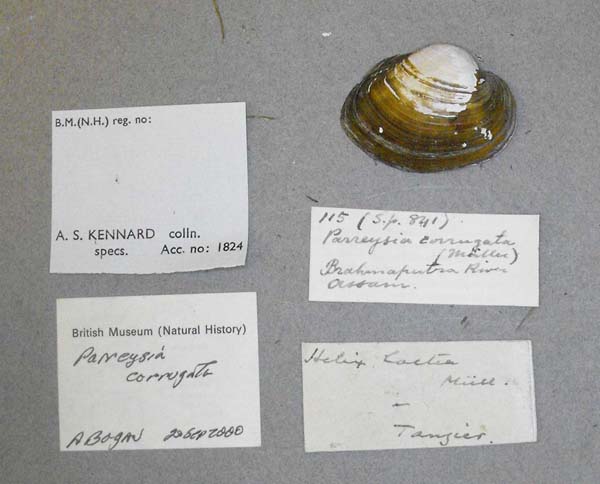 B.M.(N.H.) reg. no:
A. S. KENNARD colln.
specs. Acc. no: 1824
115 (S.p. 841).
Parreysia corrugata
(Müller)
Brahmaputra River
Assam.
British Museum (Natural History)
Parreysia
corrugata
A BOGAN 20 SEP 2000
Helix lactea
Müll.
–
Tangier.